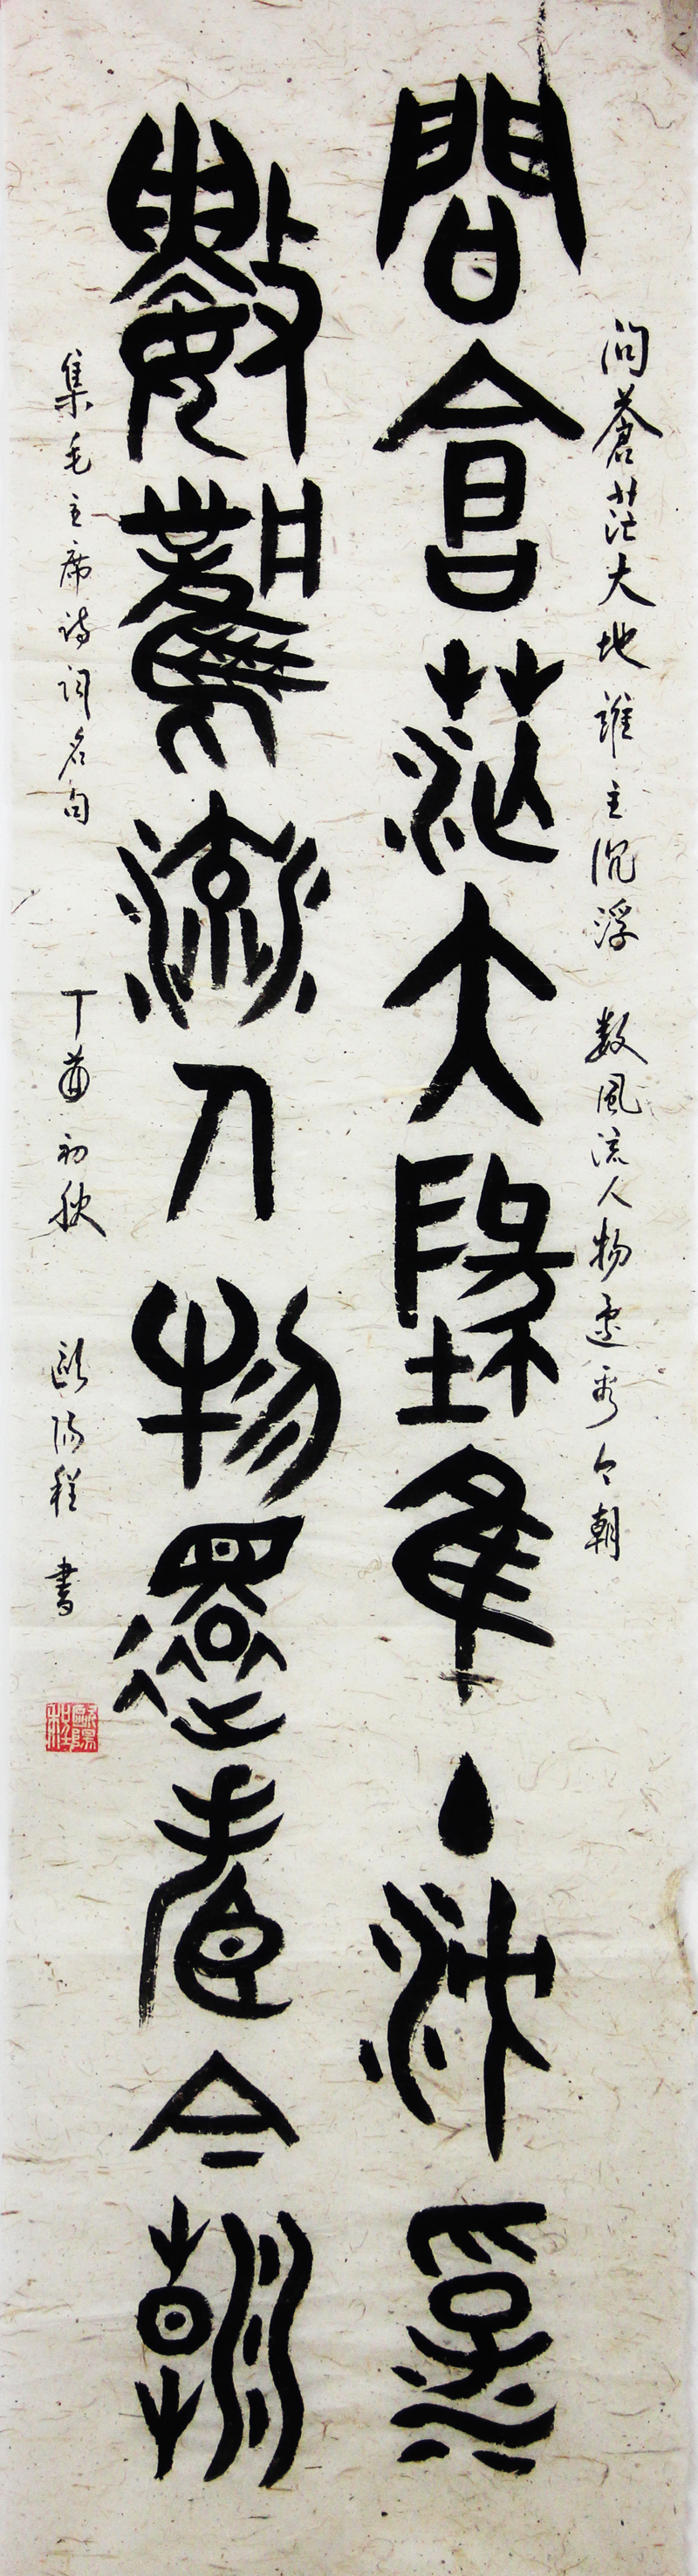 问苍茫大地隹主沉浮
数风流人物还看今朝
问苍茫大地谁主沉浮 数风流人物还看今朝
集毛主席诗词名句 丁酉初秋 欧阳程书